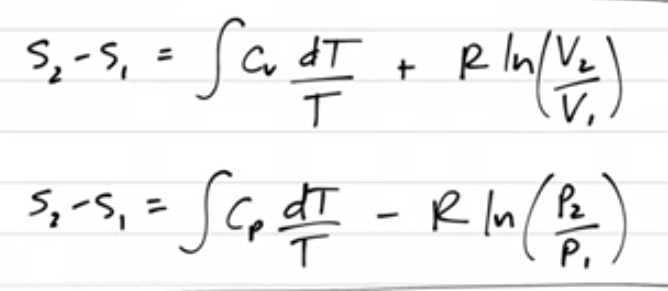 S₂-S₁ = ∫ Cᵥ dT/T + R ln(V₂/V₁)
S₂-S₁ = ∫ Cₚ dT/T - R ln(P₂/P₁)